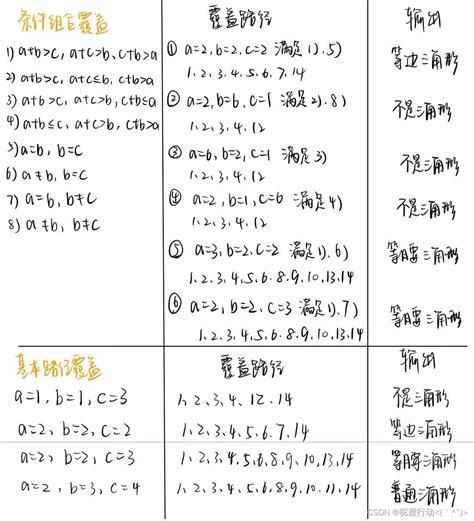 条件组合覆盖 覆盖路径 输出
1) a+b>c, a+c>b, c+b>a ① a=2, b=2, c=2 满足1). 5) 等边三角形
1. 2. 3. 4. 5. 6. 7. 14
2) a+b>c, a+c≤b, c+b>a ② a=2, b=6, c=1 满足2). 8) 不是三角形
3) a+b>c, a+c>b, c+b≤a 1. 2. 3. 4. 12
4) a+b≤c, a+c>b, c+b>a ③ a=6, b=2, c=1 满足3) 不是三角形
5) a=b, b=c 1. 2. 3. 4. 12
6) a≠b, b=c ④ a=2, b=1, c=6 满足4) 不是三角形
7) a=b, b≠c 1. 2. 3. 4. 12
8) a≠b, b≠c
⑤ a=3, b=2, c=2 满足1). 6) 等腰三角形
1. 2. 3. 4. 5. 6. 8. 9. 10. 13. 14
⑥ a=2, b=2, c=3 满足1). 7) 等腰三角形
1. 2. 3. 4. 5. 6. 8. 9. 10. 13. 14
基本路径覆盖 覆盖路径 输出
a=1, b=1, c=3 1. 2. 3. 4. 12. 14 不是三角形
a=2, b=2, c=2 1. 2. 3. 4. 5. 6. 7. 14 等边三角形
a=2, b=2, c=3 1. 2. 3. 4. 5. 6. 8. 9. 10. 13. 14 等腰三角形
a=2, b=3, c=4 1. 2. 3. 4. 5. 6. 8. 9. 10. 11. 14 普通三角形
CSDN @驼鹿行动<(˙^˙)>